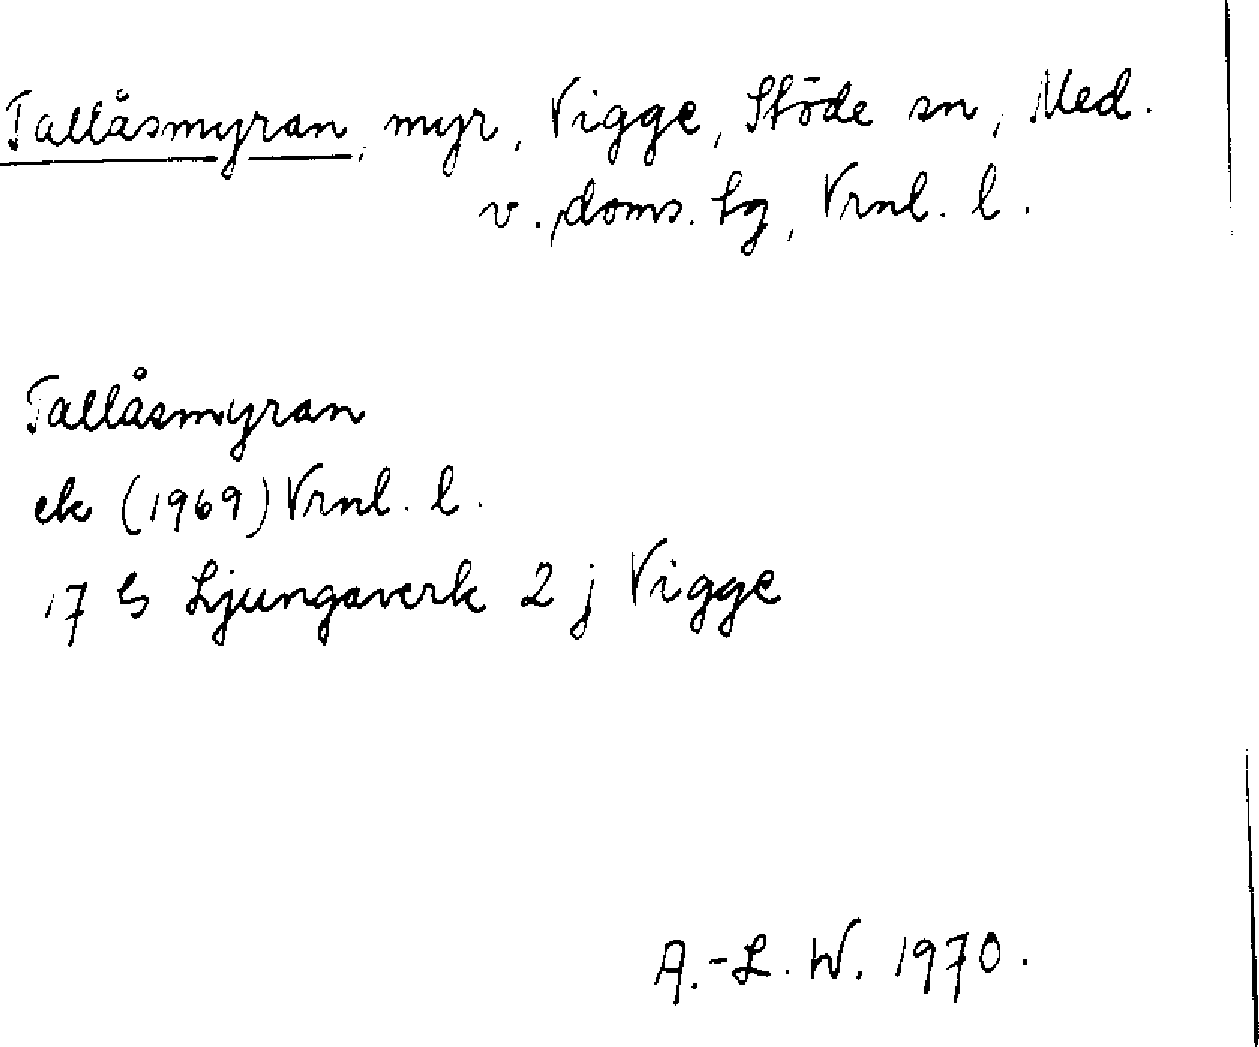 Tallåsmyran, myr, Vigge, Stöde sn, Med.
v. doms. tg, Vrnl. l.
Tallåsmyran
ek (1969) Vrnl. l.
17 G Ljungaverk 2 j Vigge
A.-L. W. 1970.